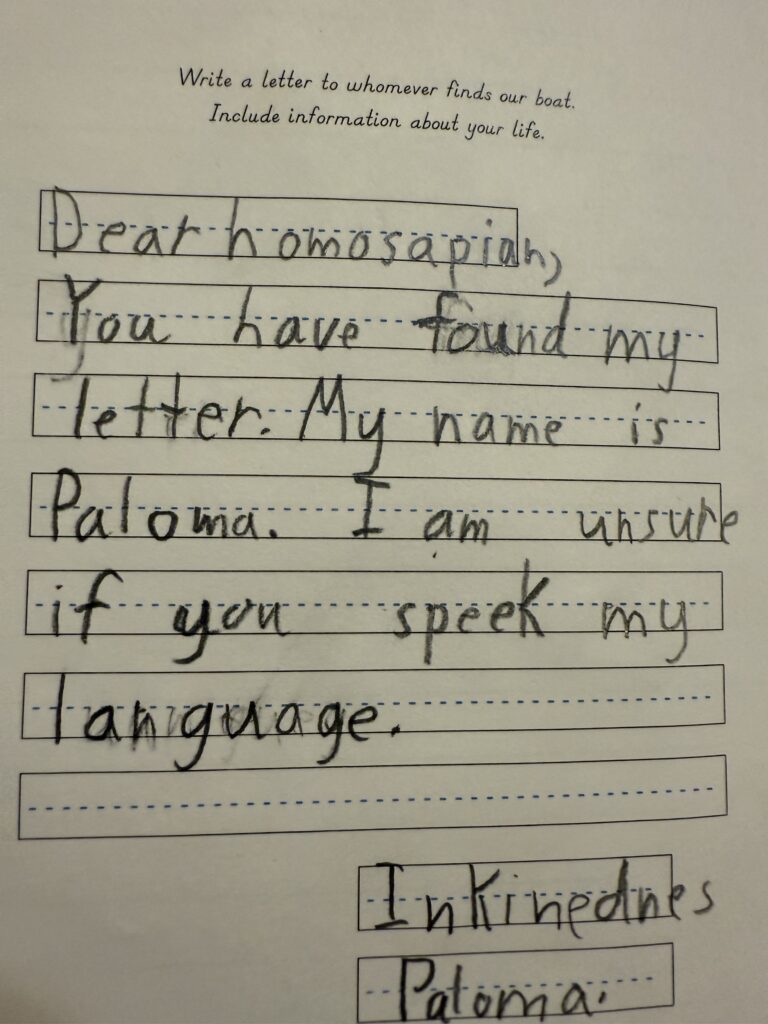 Write a letter to whomever finds our boat.
Include information about your life.
Dear homosapian,
You have found my
letter. My name is
Paloma. I am unsure
if you speek my
language.
Inkinednes
Paloma.